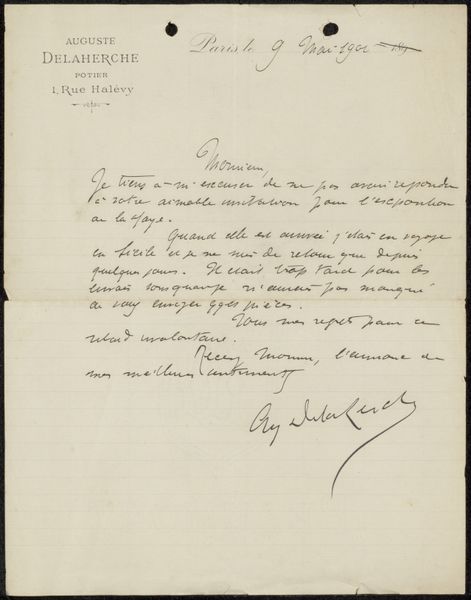 AUGUSTE
DELAHERCHE
POTIER
1, Rue Halévy
Paris le 9 Mai 1901 189
Monsieur,
Je tiens à m'excuser de ne pas avoir repondu
à votre aimable invitation pour l'exposition
de la Haye.
Quand elle est arrivée j'étais en voyage
en Sicile et je ne suis de retour que depuis
quelques jours. Il était trop tard pour les
envois sans quoi je n'aurais pas manqué
de vous envoyer qqes pièces.
Tous mes regrets pour ce
retard involontaire.
Recevez Monsieur, l'assurance de
mes meilleurs sentiments
Aug Delaherche